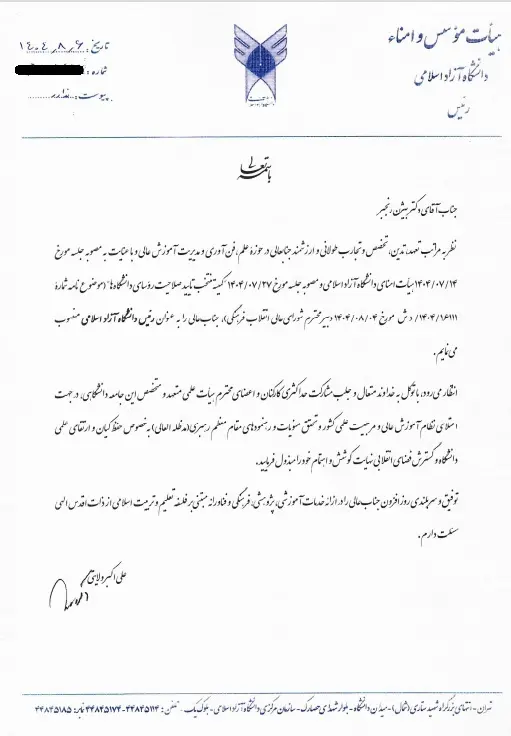 هیأت مؤسس و امناء
دانشگاه آزاد اسلامی
رئیس
تاریخ: ۱۴۰۴،۸،۶
شماره:
پیوست: ندارد
باسمه تعالی
جناب آقای دکتر بیژن رنجبر
نظر به مراتب تعهد، تدین، تخصص و تجارب طولانی و ارزشمند جنابعالی در حوزه علم، فن‌آوری و مدیریت آموزش عالی و با عنایت به مصوبه جلسه مورخ
۱۴۰۴/۰۷/۱۴ هیأت امنای دانشگاه آزاد اسلامی و مصوبه جلسه مورخ ۱۴۰۴/۰۷/۲۷ کمیته منتخب تایید صلاحیت رؤسای دانشگاه‌ها (موضوع نامه شماره
۱۴۰۴/۱۶۱۱۱/ دش مورخ ۱۴۰۴/۰۸/۰۴ دبیر محترم شورای عالی انقلاب فرهنگی)، جناب‌عالی را به عنوان رئیس دانشگاه آزاد اسلامی منصوب
می‌نمایم.
انتظار می‌رود، با توکل به خداوند متعال و جلب مشارکت حداکثری کارکنان و اعضای محترم هیأت علمی متعهد و متخصص این جامعه دانشگاهی، در جهت
اعتلای نظام آموزش عالی و مرجعیت علمی کشور و تحقق منویات و رهنمودهای مقام معظم رهبری (مدظله العالی) به خصوص حفظ کیان و ارتقای علمی
دانشگاه و گسترش فضای انقلابی نهایت کوشش و اهتمام خود را مبذول فرمایید.
توفیق و سربلندی روزافزون جناب‌عالی را در ارائه خدمات آموزشی، پژوهشی، فرهنگی و فناورانه مبتنی بر فلسفه تعلیم و تربیت اسلامی از ذات اقدس الهی
مسئلت دارم.
علی اکبر ولایتی
تهران - انتهای بزرگراه شهید ستاری (شمال) - میدان دانشگاه - بلوار شهدای حصارک - سازمان مرکزی دانشگاه آزاد اسلامی - بلوک یک تلفن: ۴۴۸۴۵۱۱۴-۴۴۸۴۵۱۷۴ نمابر: ۴۴۸۴۵۱۸۵